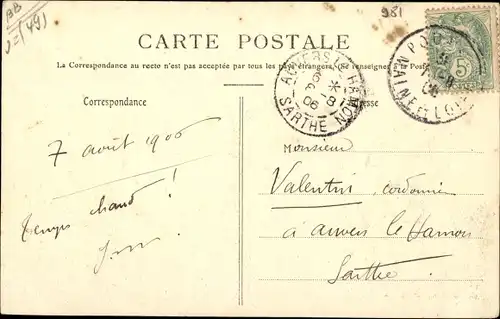 BB
J=(49)
981
CARTE POSTALE
La Correspondance au recto n'est pas acceptée par tous les pays étrangers. (Se renseigner à la Poste)
Correspondance
Adresse
AUVERS-LE-HAMON
SARTHE
8-8
06
MAINE & LOIRE
5
7 août 1906
temps chaud !
Monsieur
Valentin, cordonnier
à auvers le Hamon
Sarthe